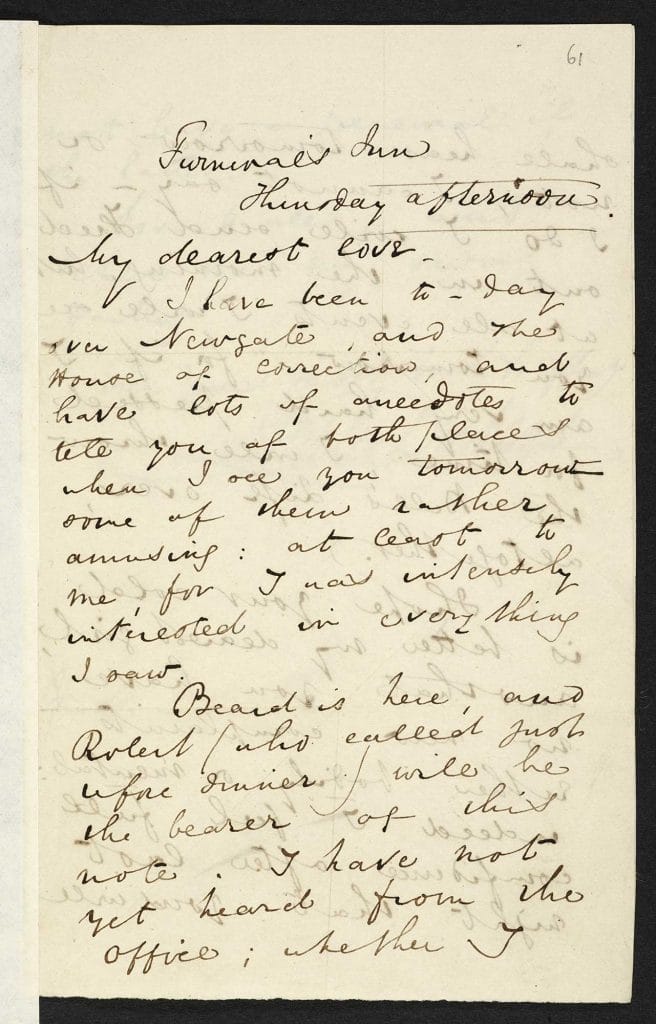 61
Furnival's Inn
Thursday afternoon.
My dearest love.
I have been to-day
over Newgate, and the
House of correction, and
have lots of anecdotes to
tell you of both places
when I see you tomorrow
some of them rather
amusing: at least to
me, for I was intensely
interested in everything
I saw.
Beard is here, and
Robert (who called just
before dinner) will be
the bearer of this
note. I have not
yet heard from the
office; whether I